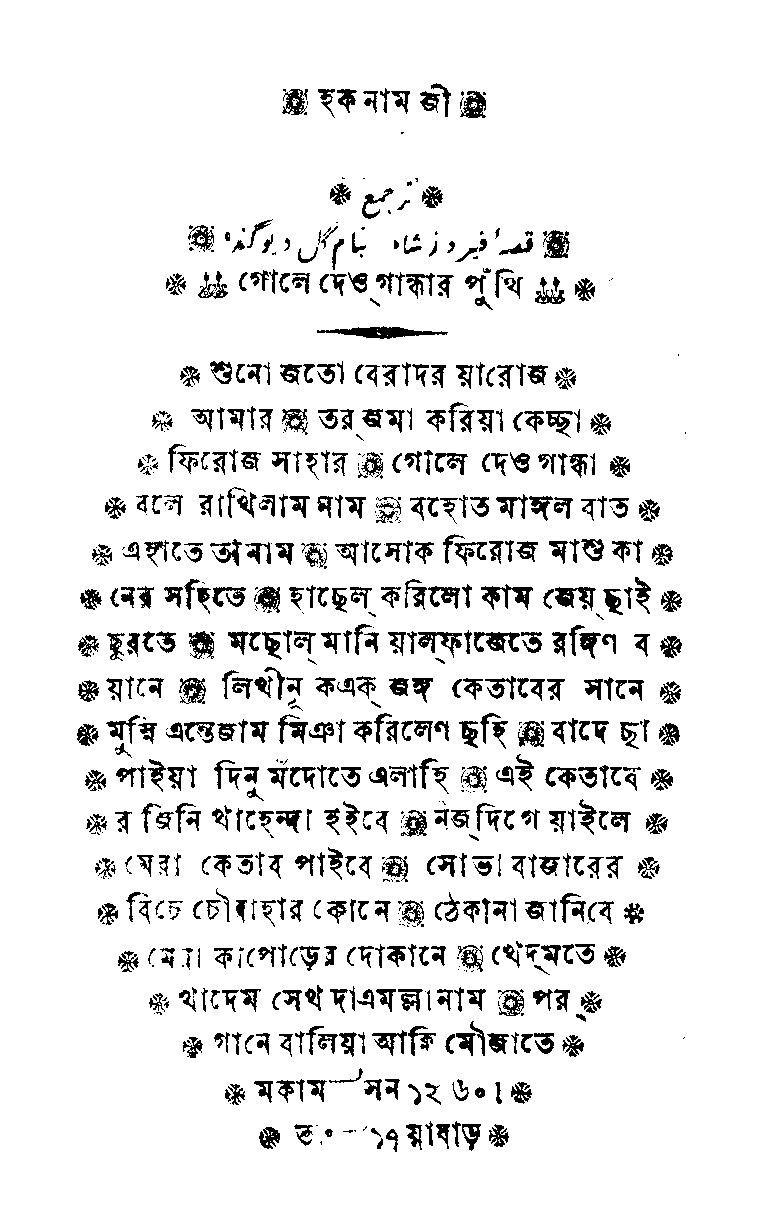 হক নাম জী
ترجمع
قصهٔ فیروز شاه بنام گل دیوگند
গোলে দেও্গান্ধার পুঁথি
শুনো জতো বেরাদর য়ারোজ
আমার তর্জমা করিয়া কেচ্ছা
ফিরোজ সাহার গোলে দেওগান্ধা
বলে রাখিলাম নাম বহোত মাঙ্গল বাত
এহাতে তামাম আসোক ফিরোজ মাশুকা
নের সহিতে হাছেল্ করিলো কাম জেয়্ছাই
ছুরতে মছোল্মানি য়াল্ফাজেতে রঙ্গিণ ব
য়ানে লিখীনূ কএক্ জঙ্গ কেতাবের সানে
মুন্সি এন্তেজাম মিঞা করিলেণ ছহি বাদে ছা
পাইয়া দিনু মদোতে এলাহি এই কেতাবে
র জিনি খাহেন্দা হইবে নজ্দিগে য়াইলে
মেরা কেতাব পাইবে সোভাবাজারের
বিচে চৌরাহার কোনে ঠেকানা জানিবে
মেরা কাপোড়ের দোকানে খেদ্মতে
খাদেম সেখ দাএমল্লা নাম পর্
গানে বালিয়া আক্লি মৌজাতে
মকাম সন ১২৬০।
তা০ ১৭ য়াষাড়